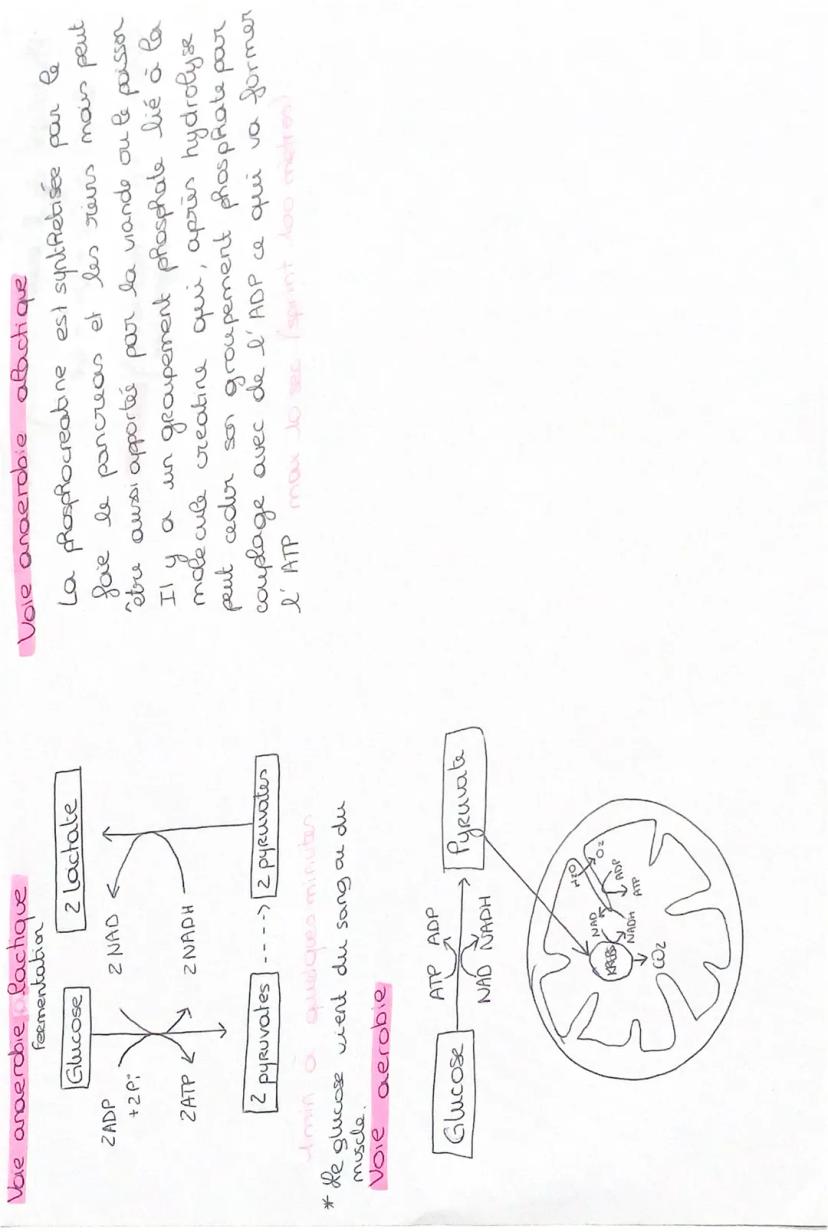 Voie anaerobie lactique
fermentation
Glucose
2 lactate
2ADP
+2Pi
2 NAD
2ATP
2 NADH
2 pyruvates
2 pyruvates
1min à quelques minutes
* Le glucose vient du sang ou du
muscle.
Voie aerobie
Glucose
ATP ADP
NAD NADH
Pyruvate
KREBS
NAD
NADH
H2O
O2
ADP
ATP
CO2
Voie anaerobie alactique
La phosphocreatine est synthétisée par le
foie le pancreas et les reins mais peut
être aussi apportée par la viande ou le poisson
Il y a un groupement phosphate lié à la
molécule creatine qui, après hydrolyse
peut ceder son groupement phosphate par
couplage avec de l'ADP ce qui va former
l'ATP max 10 sec (sprint 100 mètres)